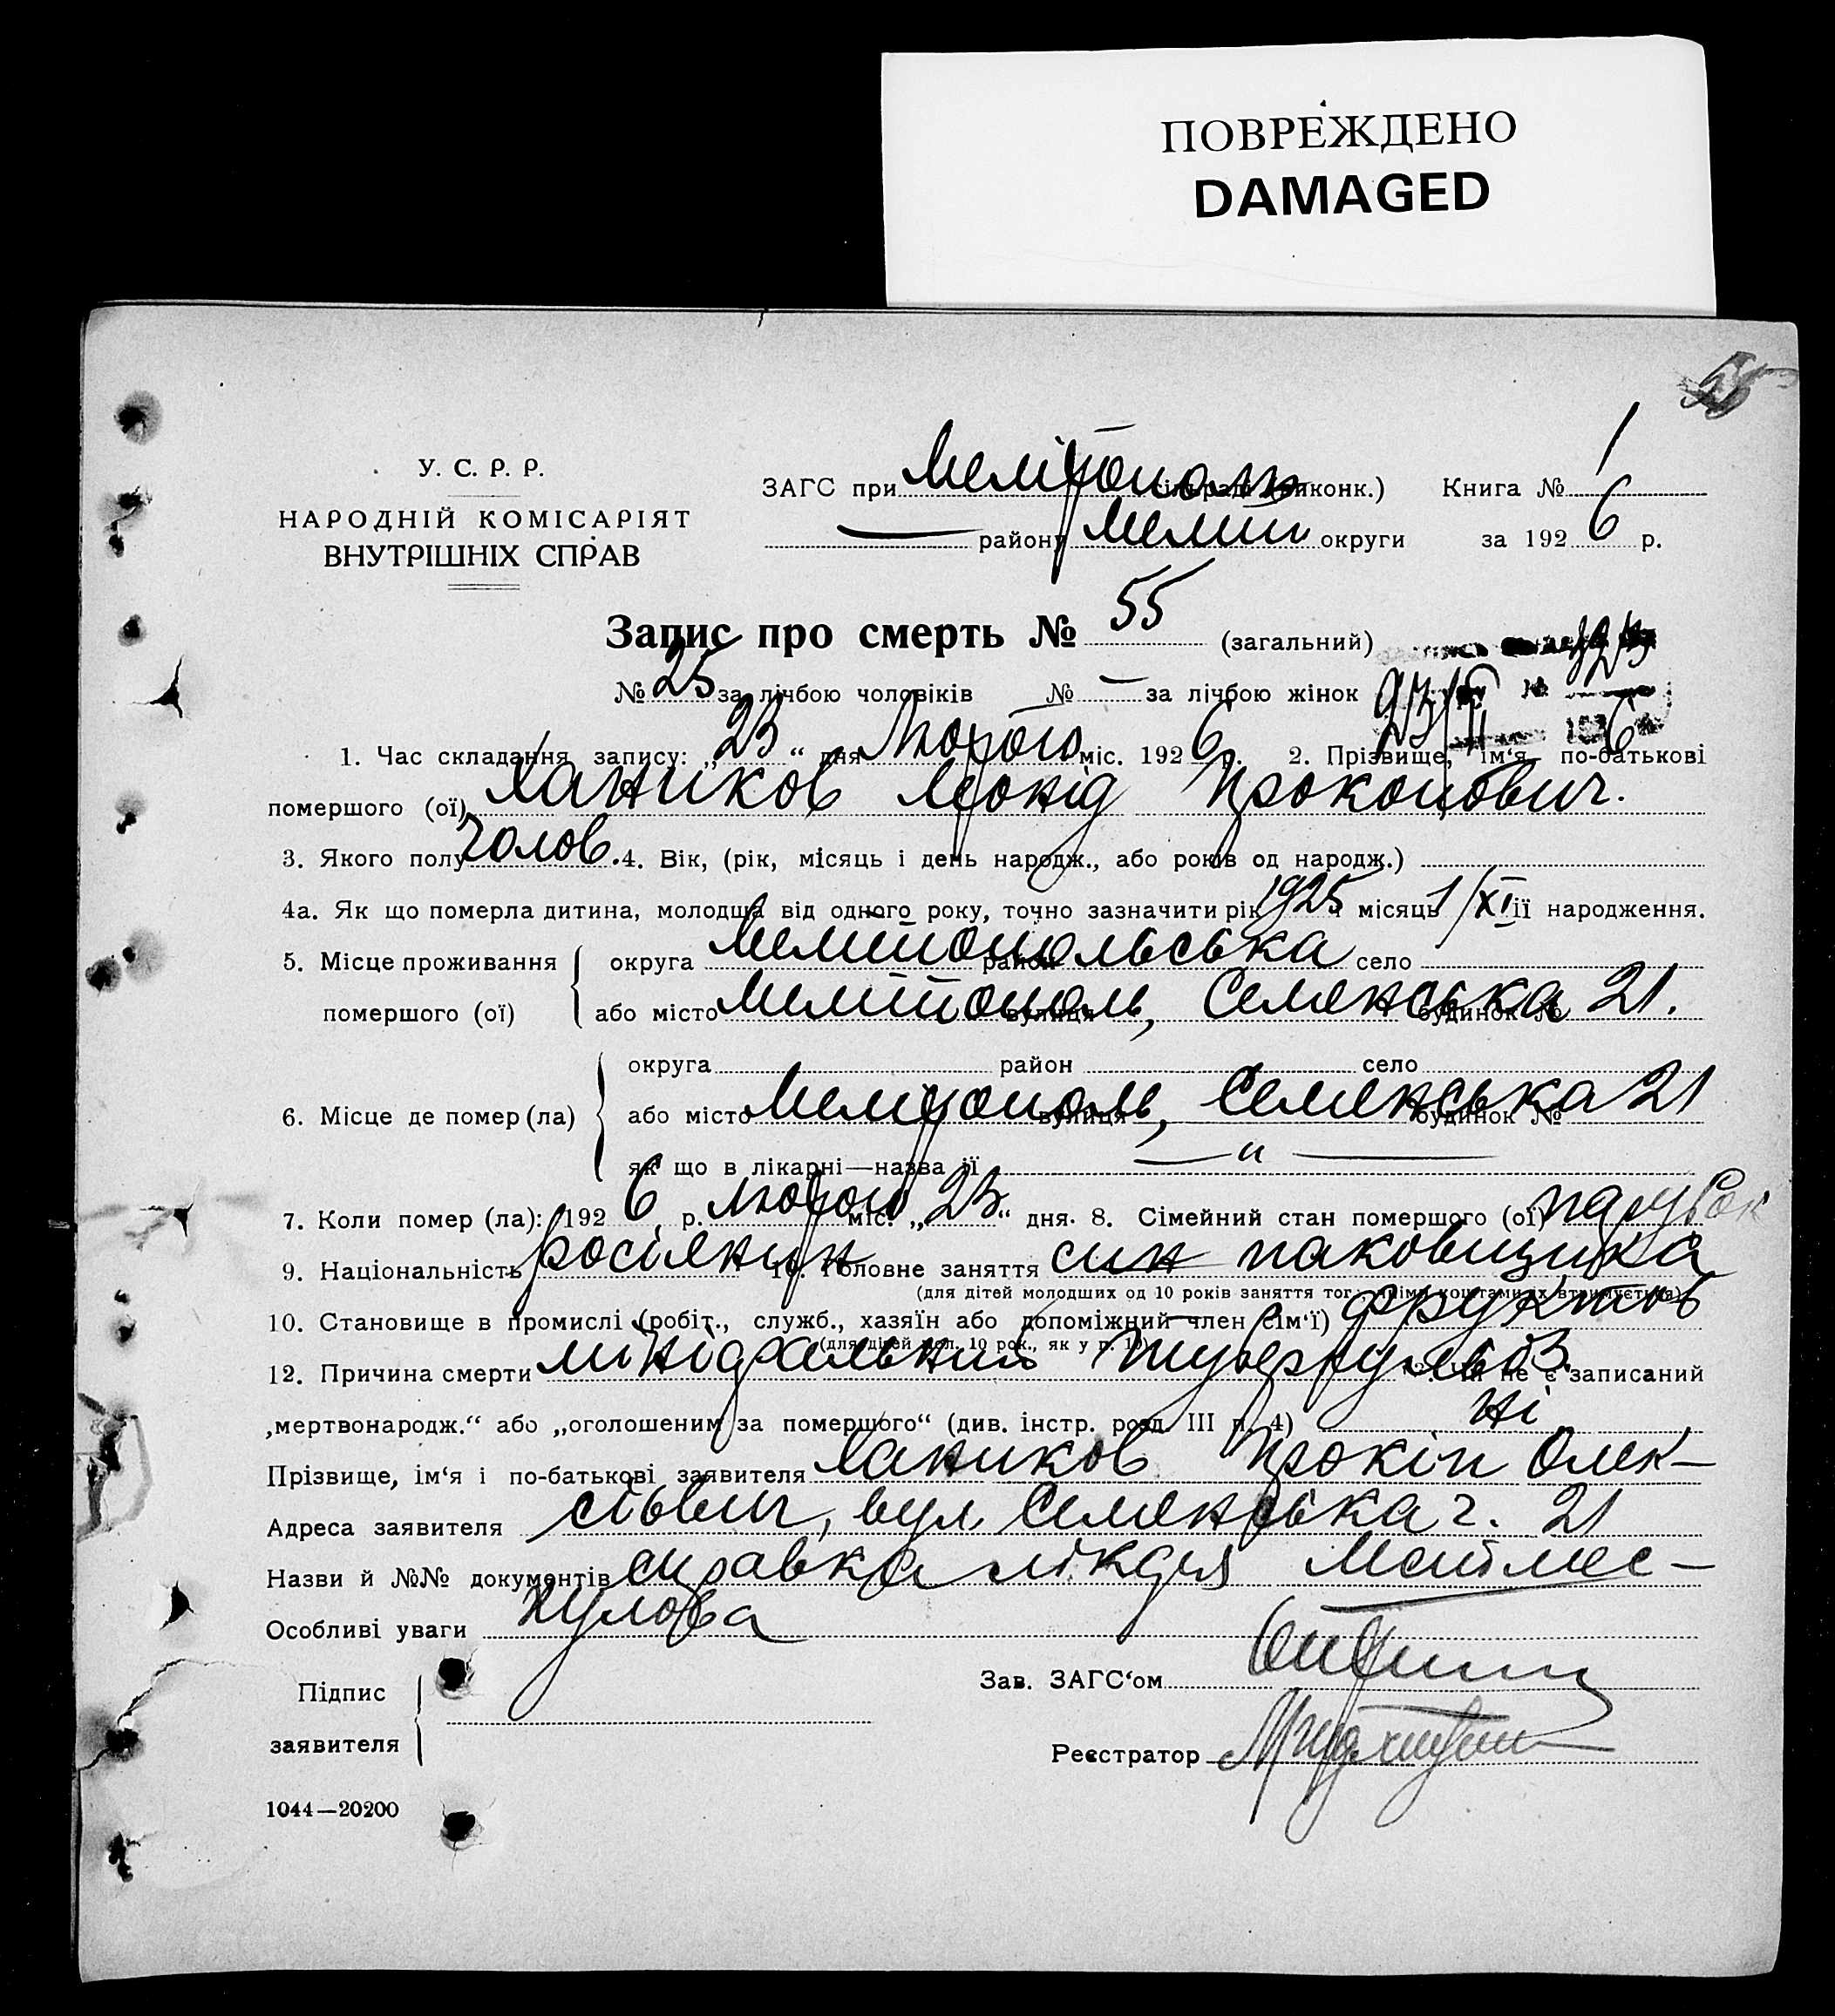 ПОВРЕЖДЕНО
DAMAGED
55
У. С. Р. Р.
НАРОДНІЙ КОМІСАРІЯТ
ВНУТРІШНІХ СПРАВ
ЗАГС при Мелітополь (виконк.) Книга № 1
— району Меліт округи за 192 6 р.
Запис про смерть № 55 (загальний)
№ 25 за лічбою чоловіків № — за лічбою жінок
1. Час складання запису: „23“ дня Лютого міс. 192 6 р. 2. Прізвище, ім‘я по-батькові
помершого (ої) Хаников Леонід Прокопович.
3. Якого полу чолов. 4. Вік, (рік, місяць і день народж., або років од народж.)
4а. Як що померла дитина, молодша від одного року, точно зазначити рік 1925 місяць 1/XI її народження.
5. Місце проживання округа Мелітопольська район село
помершого (ої) або місто Мелітополь, вулиця Семенська будинок № 21.
округа район село
6. Місце де помер (ла) або місто Мелітополь, вулиця Семенська будинок № 21
як що в лікарні—назва її — „ —
7. Коли помер (ла): 192 6 р. Лютого міс. „23“ дня. 8. Сімейний стан помершого (ої) парубок
9. Національність росіянин 10. Головне заняття син паковщика
(для дітей молодших од 10 років заняття того, чиїми коштами їх втримується)
10. Становище в промислі (робіт., служб., хазяїн або допоміжний член сім‘ї) фруктов
(для дітей мол. 10 рок., як у п. 10)
12. Причина смерти туберкульоз. Чи не є записаний
„мертвонародж.“ або „оголошеним за помершого“ (див. інстр. розд. III п. 4) Ні
Прізвище, ім‘я і по-батькові заявителя Хаников Прокіп Олек-
Адреса заявителя сіьвич, вул. Семенська ч. 21
Назви й №№ документів справка лікаря
Особливі уваги
Підпис
заявителя
Зав. ЗАГС‘ом
Реєстратор
1044—20200